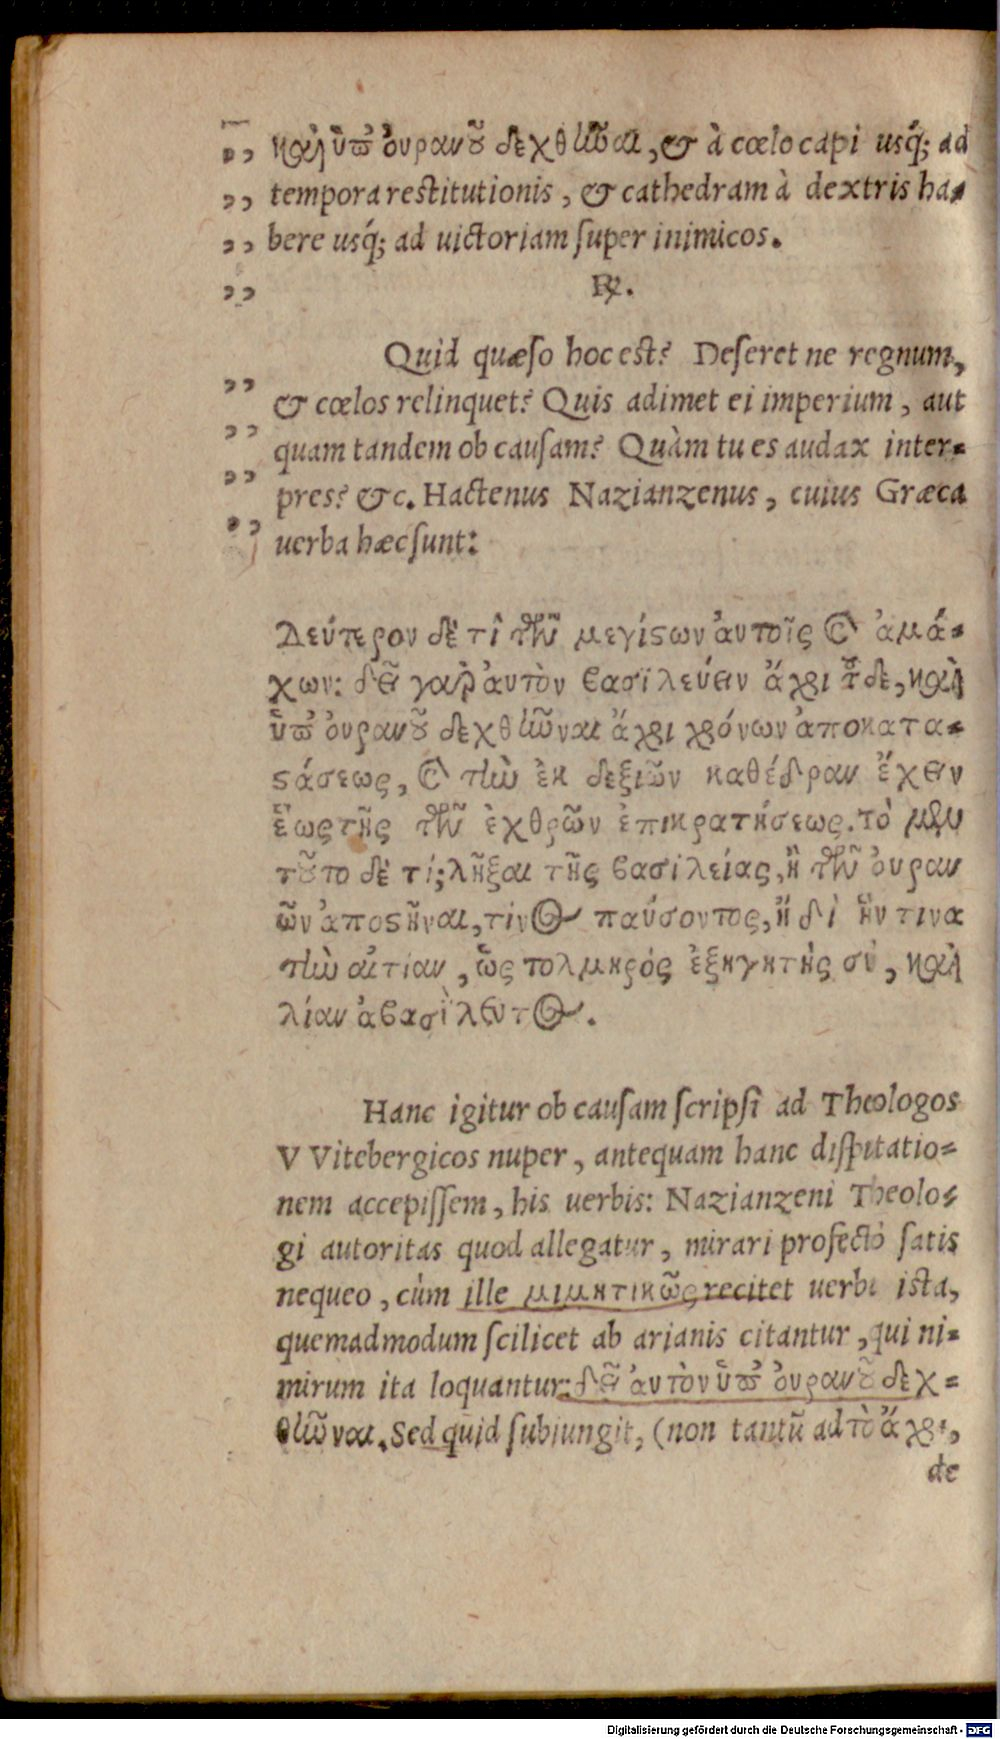 „ καὶ ὑπ᾽ ὀυρανοῦ δεχθῆναι, & à cœlo capi usq́; ad
„ tempora restitutionis, & cathedram à dextris ha-
„ bere usq́; ad uictoriam super inimicos.
„ ℞.
Quid quæso hoc est? Deseret ne regnum,
„ & cœlos relinquet? Quis adimet ei imperium, aut
„ quam tandem ob causam? Quàm tu es audax inter-
„ pres? &c. Hactenus Nazianzenus, cuius Græca
„ uerba hæc sunt:
Δεύτερον δὲ τὶ τῶν μεγίστων ἀυτοῖς καὶ ἀμά-
χων: δεῖ γαρ ἀυτὸν βασιλεύειν ἄχρι τοῦδε, καὶ
ὑπ᾽ ὀυρανοῦ δεχθῆναι ἄχρι χρόνων ἀποκατα-
στάσεως, καὶ τὴν ἐκ δεξιῶν καθέδραν ἔχειν
ἕως τῆς τῶν ἐχθρῶν ἐπικρατήσεως. τὸ μὲν
τοῦτο δὲ τί; λῆξαι τῆς βασιλείας, ἢ τῶν ὀυραν
ῶν ἀποστῆναι, τίνος παύσοντος, ἢ δι ἥν τινα
τὴν αἰτίαν, ὡς τολμηρός ἐξηγητὴς σύ, καὶ
λίαν ἀβασίλευτος.
Hanc igitur ob causam scripsi ad Theologos
VVitebergicos nuper, antequam hanc disputatio-
nem accepissem, his uerbis: Nazianzeni Theolo-
gi autoritas quod allegatur, mirari profectò satis
nequeo, cùm ille μιμητικῶς recitet uerba ista,
quemadmodum scilicet ab arianis citantur, qui ni-
mirum ita loquantur: δεῖ ἀυτὸν ὑπ᾽ ὀυρανοῦ δεχ-
θῆναι. Sed quid subiungit, (non tantũ ad τὸ ἄχρι,
de
Digitalisierung gefördert durch die Deutsche Forschungsgemeinschaft - DFG